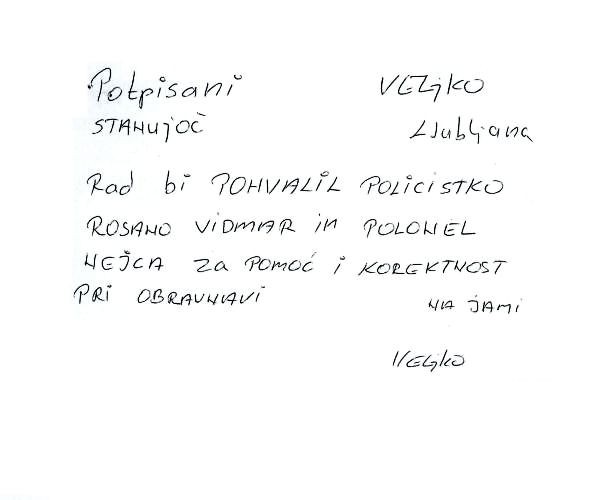 Potpisani VELjKO
STANUjOČ Ljubljana
Rad bi POHVALIL POLICISTKO
ROSANO VIDMAR in POLONEL
NEJCA za POMOĆ i KOREKTNOST
PRI OBRAVNAVI NA jAMI
VELjKO